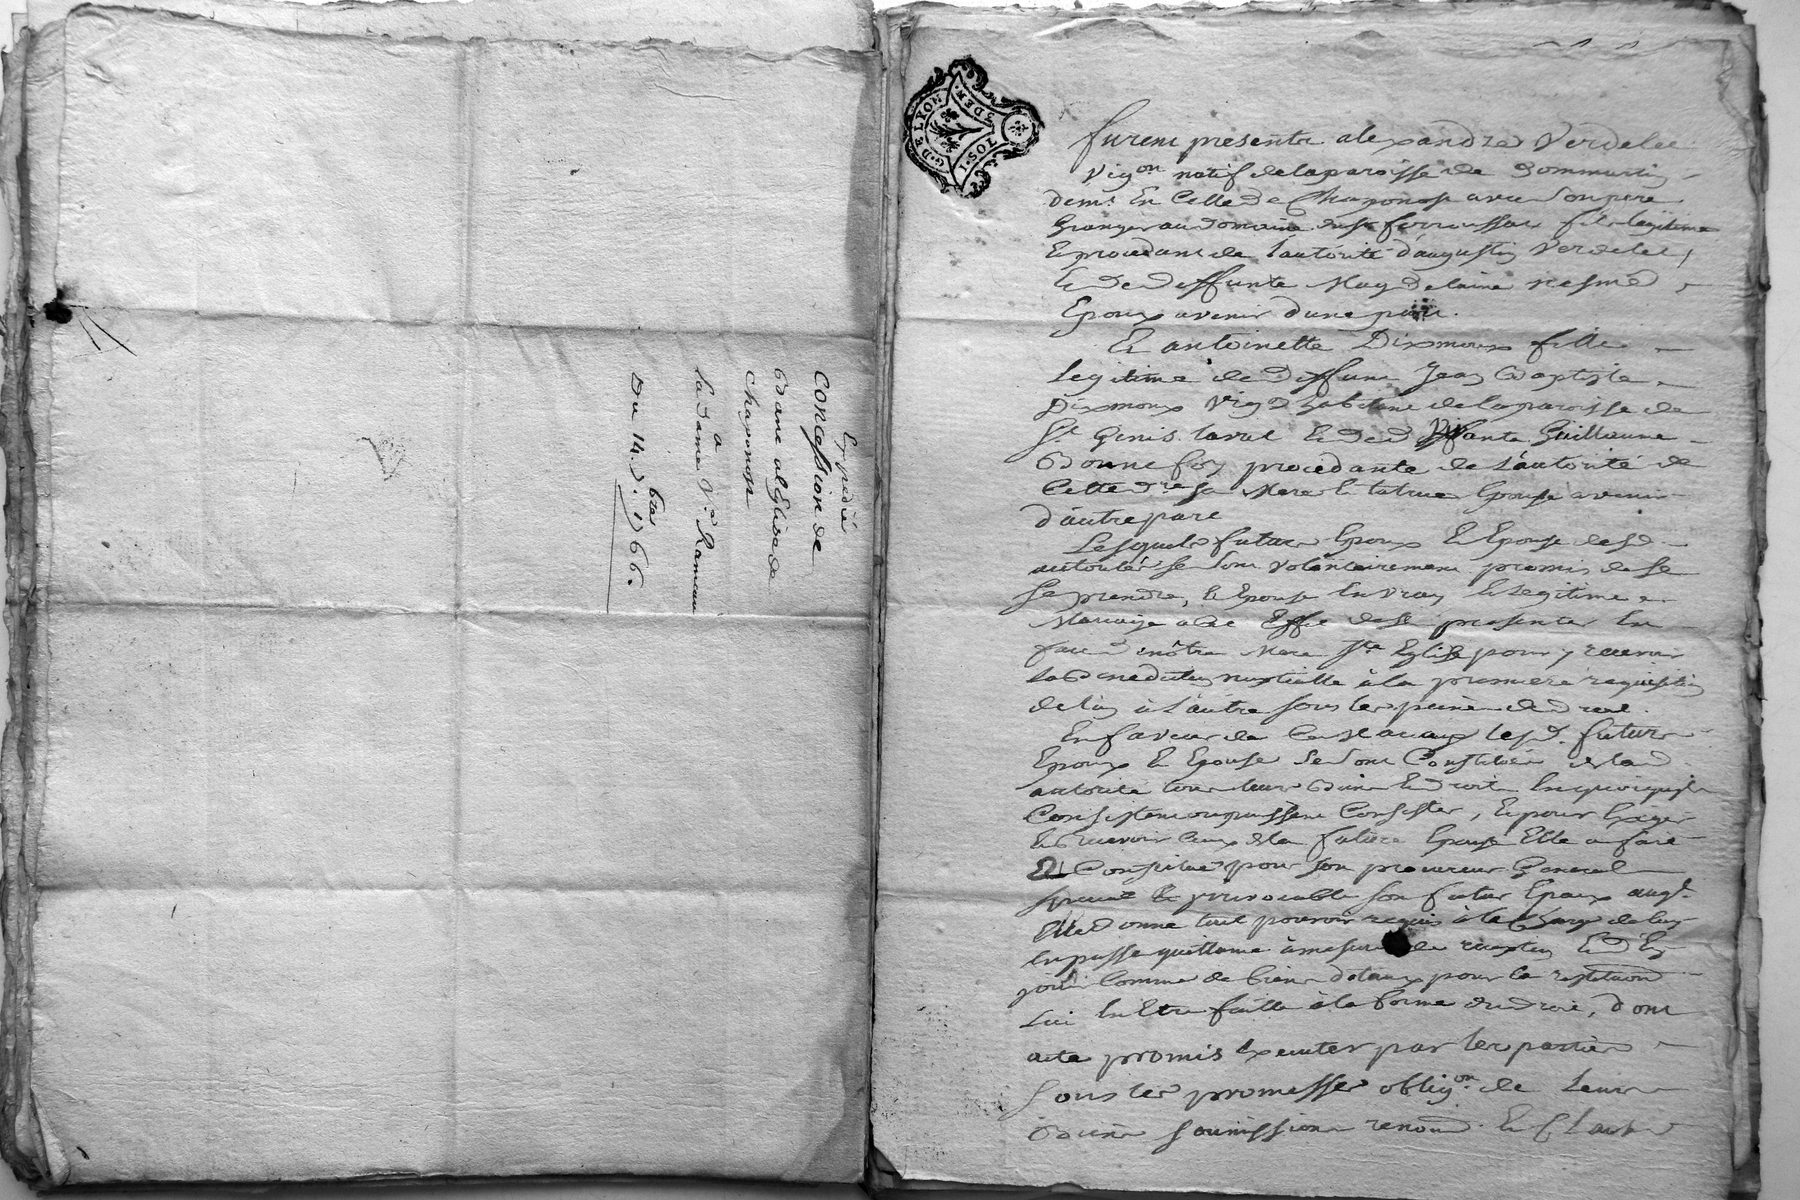 Expedié
Concession de
banc al'Eglise de
Chaponost
a
la dame Ve. Rameau
Du 14. 9bre 1766.
G. DE LYON
1 SOL
DEN.
furent presents alexandre Verdelet
Vigon natif de la paroisse de Dommartin
demt En Celle de Chaponost avec Son pere
Granger au domaine du Sr ferroussat fils legitime
Et procedant de l'autorité d'augustin Verdelet,
Et De Deffunte Magdelaine
Epoux avenir d'une part.
Et antoinette Dixmoux fille
legitime de Deffunt Jean Baptiste
Dixmoux Vign habitant de la paroisse de
St Genis Laval Et de Guillaume
Bonnefoy procedante de L'autorité de
Cette de sa Mere Et tutrice Epouse avenir
d'autre part
Lesquels futurs Epoux Et Epouse de Sd
autorités se Sont Volontairement promis de Se
prendre, Et Epouser En Vray Et Legitime
Mariage a Cet Effet de se presenter En
face de nôtre Mere Ste Eglise pour y recevoir
la Benediction nuptialle à la premiere requisition
de l'un à L'autre sous les peines de Droit.
En faveur de Ce Mariage les d. futurs
Epoux Et Epouse se sont Constitués
autorité tous leurs Biens Et Droits En quoi qu'ils
Consistent ou puissent Consister, Et pour Exiger
Et recevoir Ceux de la future Epouse Elle a fait
Et Constitué pour son procureur General
special Et irrevocable son futur Epoux auql
Elle Donne tout pouvoir requis à la Charge de luy
En passer quittance à mesure de reception Et d'En
jouir Comme de biens dotaux pour la restitution
Lui En Etre faitte à la forme du Droit, dont
acte promis Executer par les parties
Sous les promesses obligon de Leurs
Biens Soumissions renon. Et Clauses